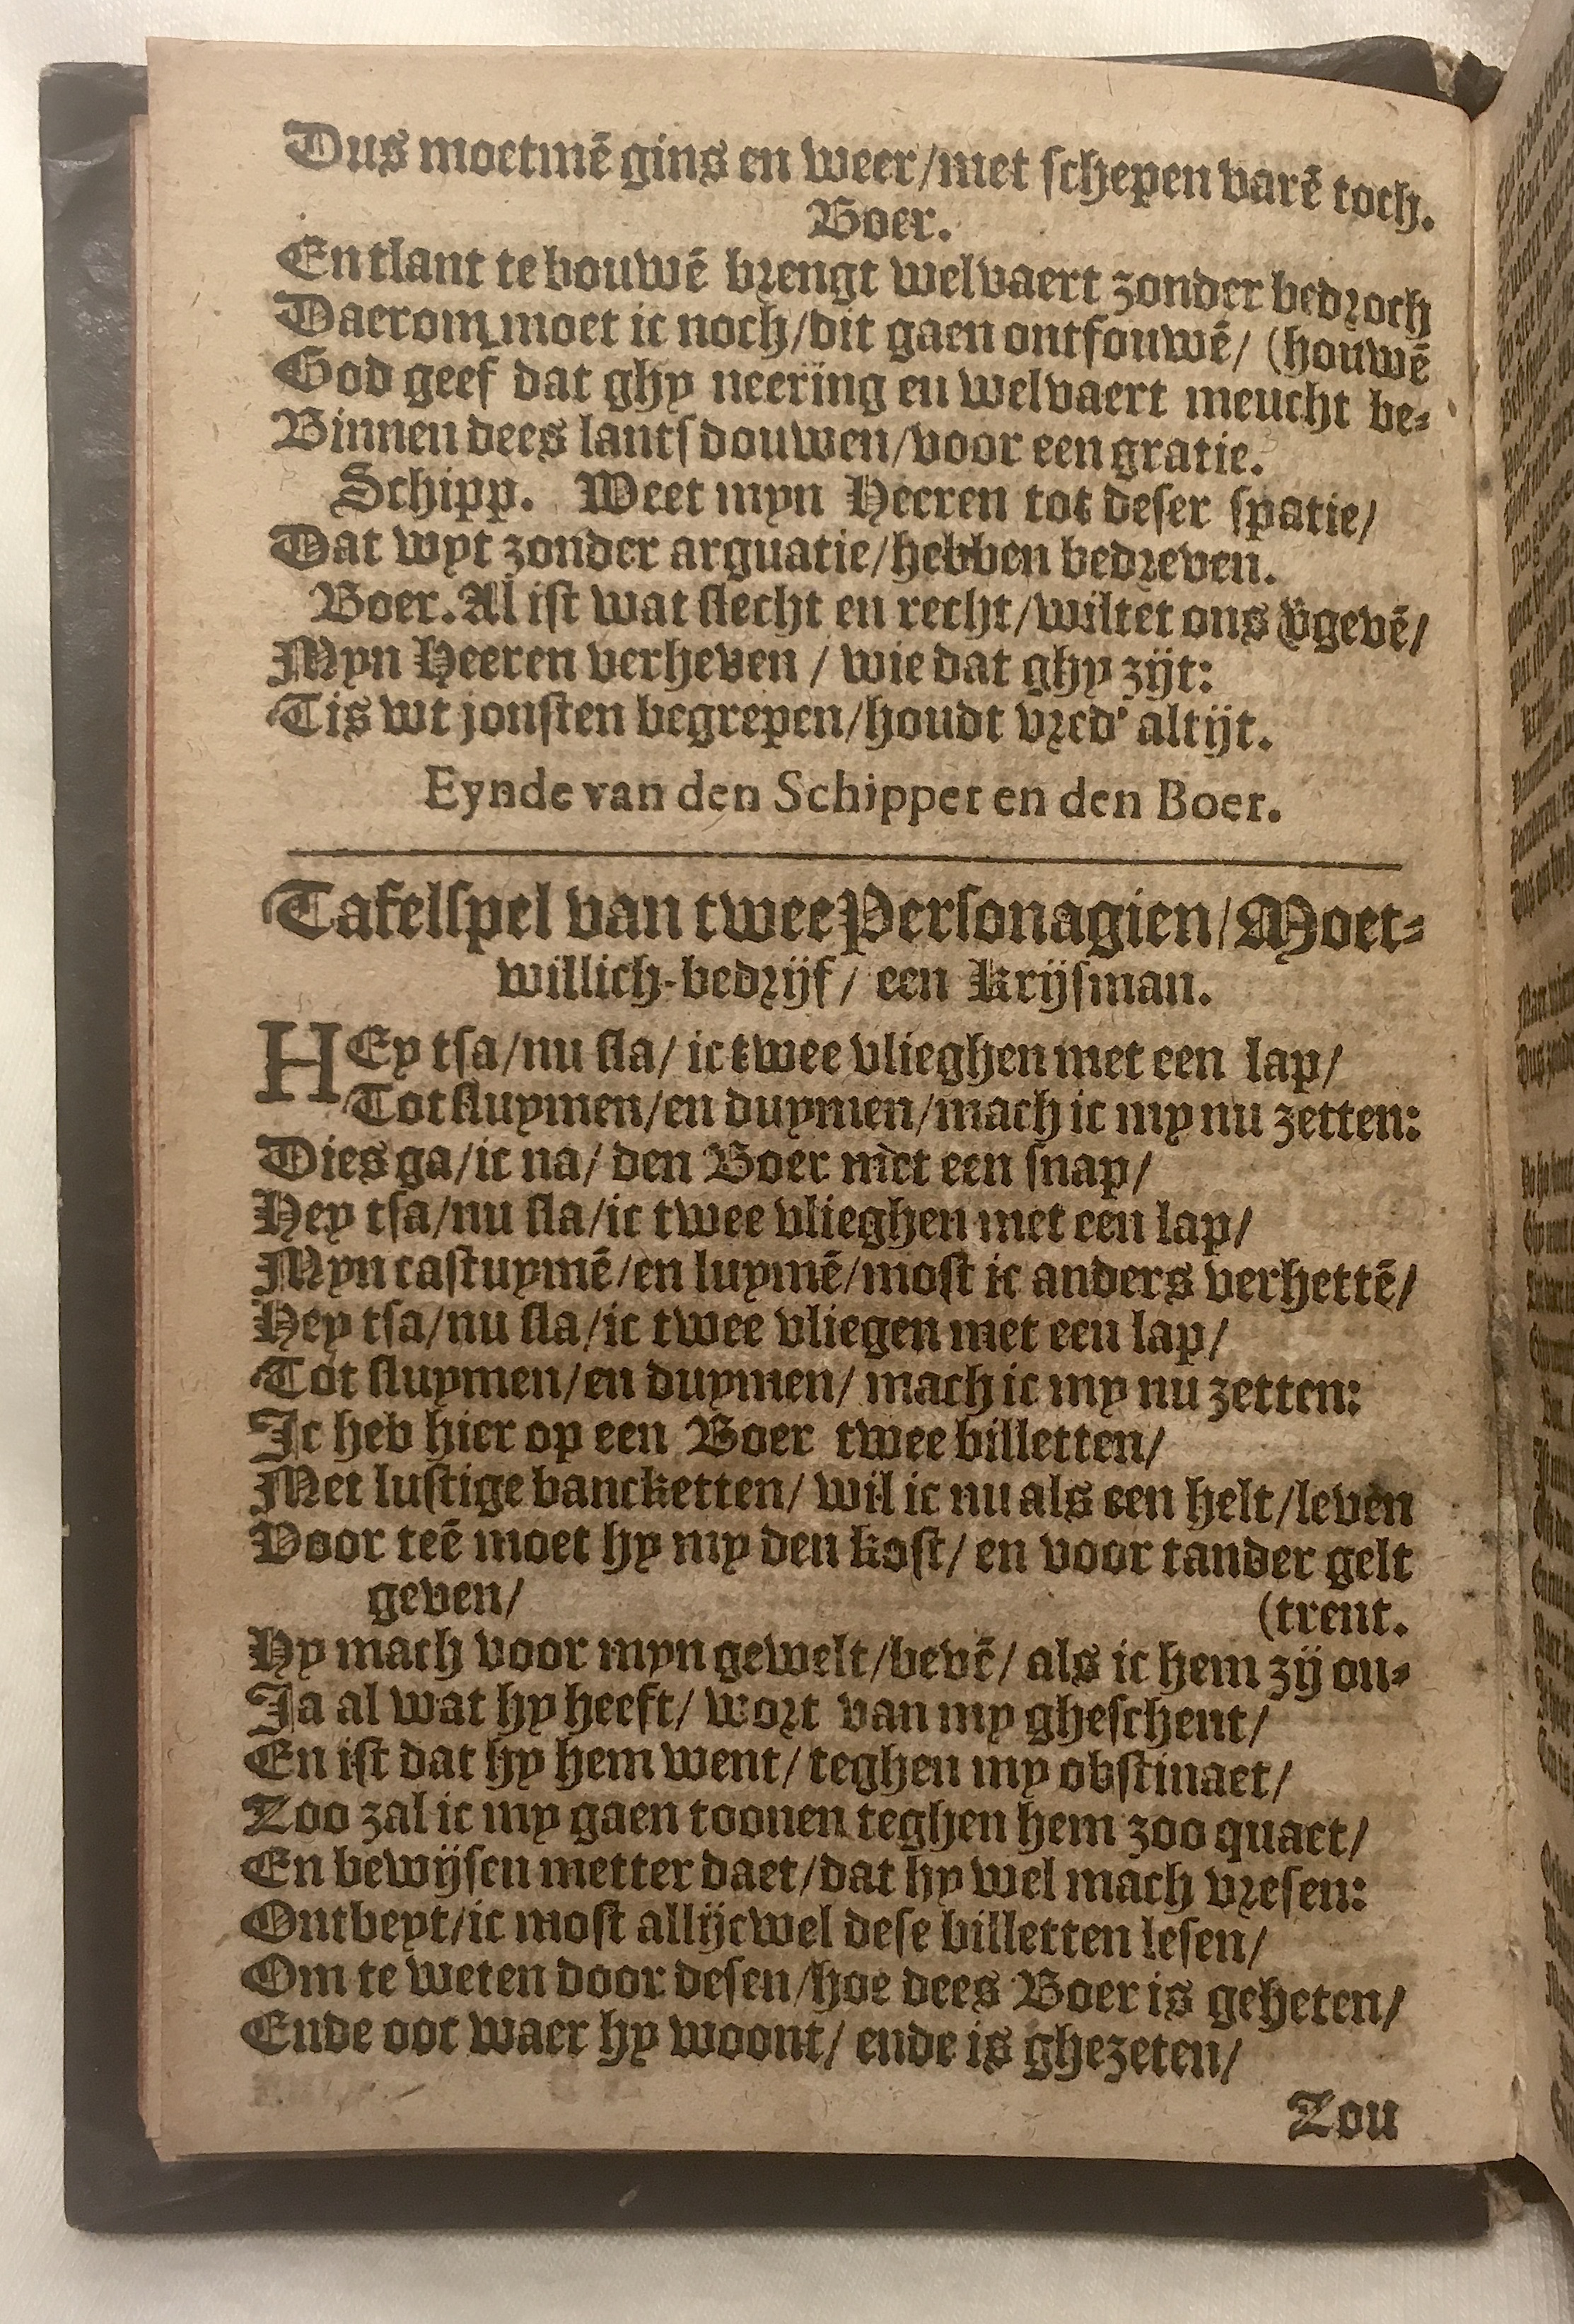 Dus moetmē gins en weer/met schepen varē toch.
Boer.
En tlant te bouwē brengt welvaert zonder bedroch
Daerom moet ic noch/dit gaen ontfouwē/ (houwē
God geef dat ghy neering en welvaert meucht be-
Binnen dees lants douwen/voor een gratie.
Schipp. Weet myn Heeren tot deser spatie/
Dat wyt zonder arguatie/hebben bedreven.
Boer. Al ist wat slecht en recht/wiltet ons v̄gevē/
Myn Heeren verheven / wie dat ghy zijt:
Tis wt jonsten begrepen/houdt vred' altijt.
Eynde van den Schipper en den Boer.
Tafelspel van twee Personagien/Moet-
willich-bedrijf/ een Krijsman.
HEy tsa/nu sla/ ic twee vlieghen met een lap/
Tot sluymen/en duymen/mach ic my nu zetten:
Dies ga/ic na/ den Boer met een snap/
Hey tsa/nu sla/ic twee vlieghen met een lap/
Myn castuymē/en luymē/most ic anders verhettē/
Hey tsa/nu sla/ic twee vliegen met een lap/
Tot sluymen/en duymen/ mach ic my nu zetten:
Ic heb hier op een Boer twee billetten/
Met lustige bancketten/ wil ic nu als een helt/leven
Voor teē moet hy my den kost/ en voor tander gelt
geven/ (trent.
Hy mach voor myn gewelt/bevē/ als ic hem zij on-
Ja al wat hy heeft/ wort van my gheschent/
En ist dat hy hem went/ teghen my obstinaet/
Zoo zal ic my gaen toonen teghen hem zoo quaet/
En bewijsen metter daet/dat hy wel mach vresen:
Ontbeyt/ic most allijcwel dese billetten lesen/
Om te weten door desen/hoe dees Boer is geheten/
Ende ooc waer hy woont/ ende is ghezeten/
Zou